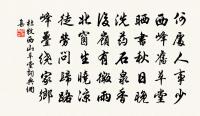 何處人事少
西峰舊草堂
曬書秋日晚
洗藥石泉香
後嶺有微雨
北窗生曉涼
徒勞問歸路
峰疊繞家鄉
杜牧西山草堂詞典網
集